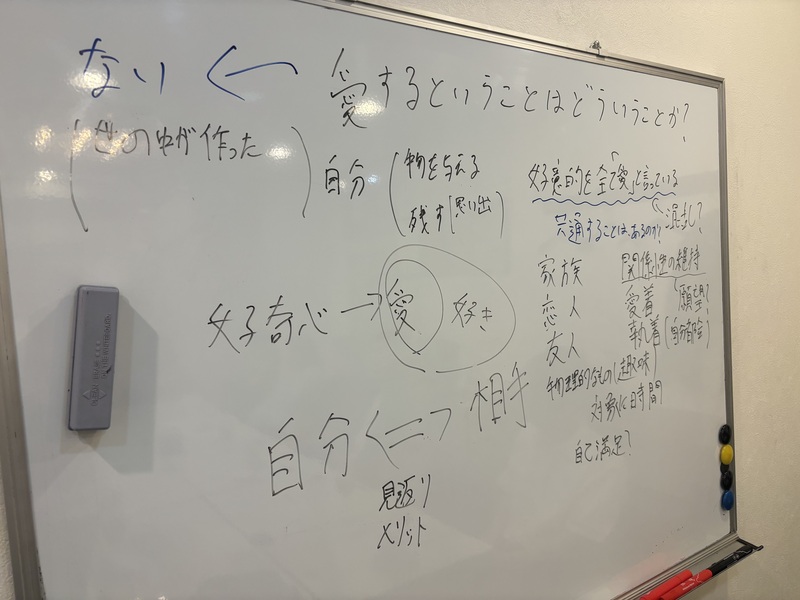 愛するということはどういうことか?
ない ←
(世の中が作った)
自分 (物を与える
残す[思い出)
好意的を全て"愛"と言っている
混乱?
共通することは、あるのか?
家族
恋人
友人
物理的なもの(趣味)
関係性の維持
愛着
執着
願望?
対象に時間
自己満足?
好奇心→愛 好き
自分 ⇔ 相手
見返り
メリット